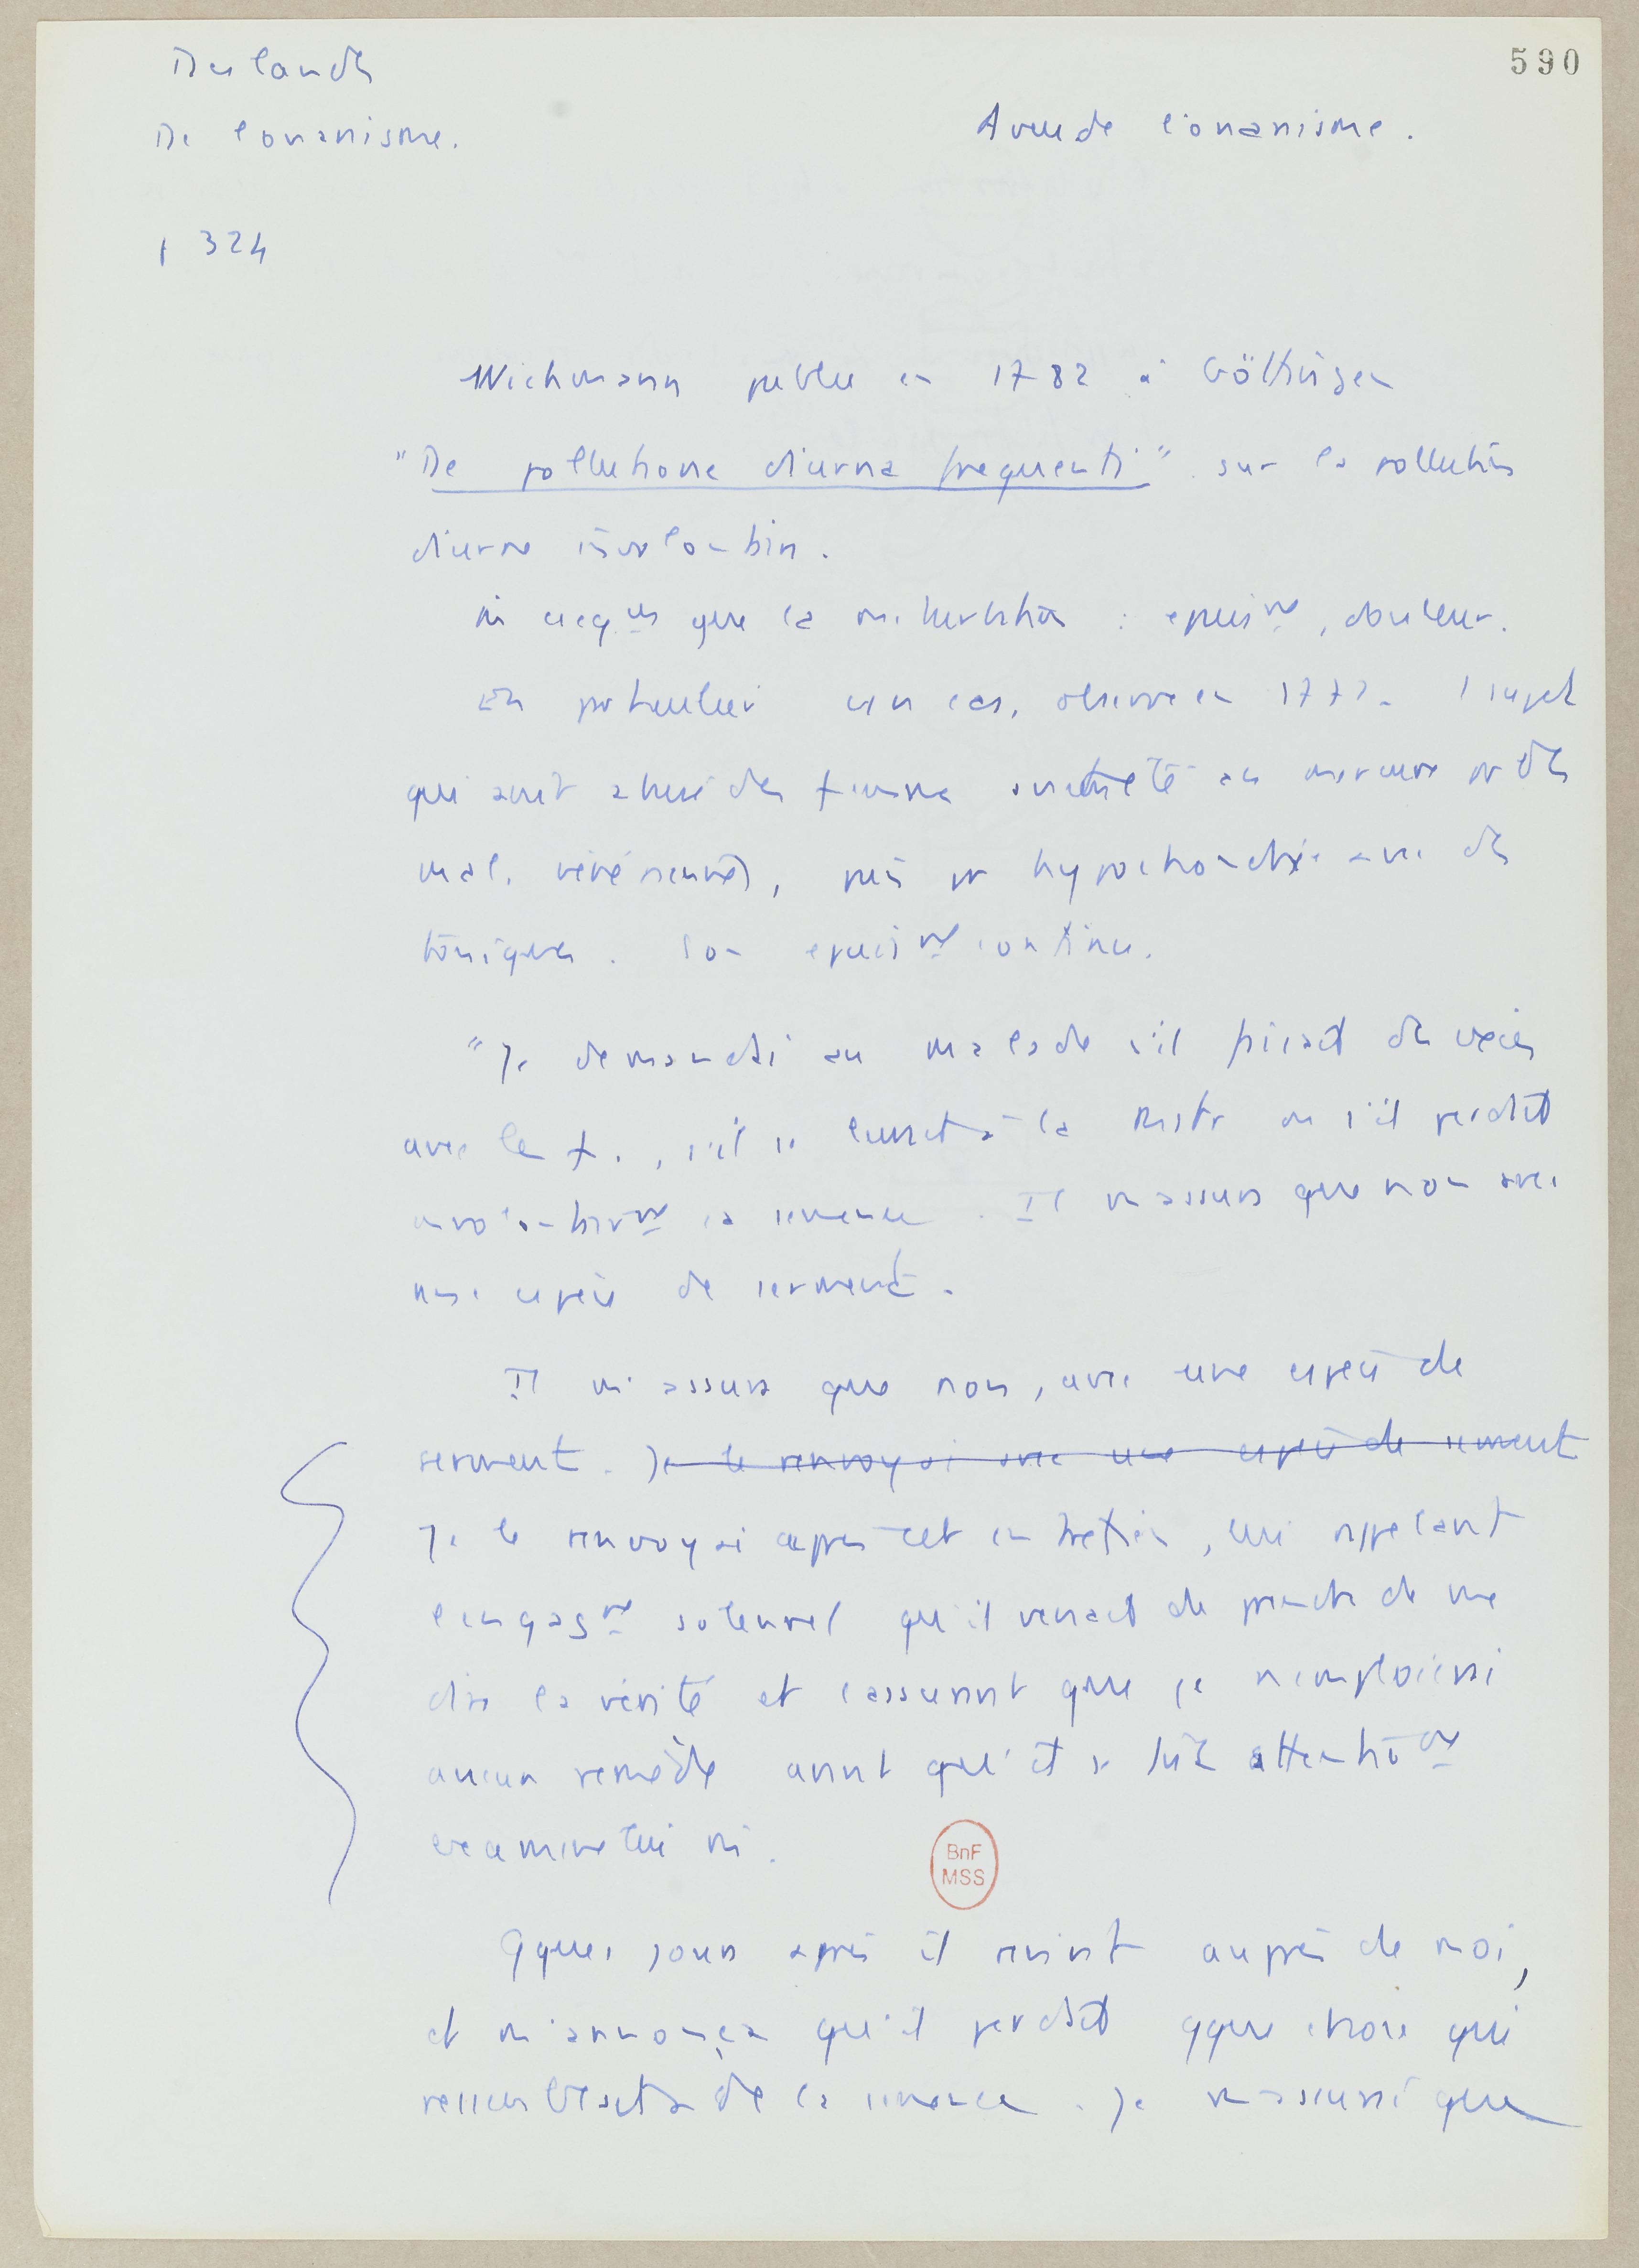 590
Deslandes
De l'onanisme.
Aveu de l'onanisme.
p 324
Wichmann publie en 1782 à Göttingen
"De pollutione diurna frequenti" sur la pollution
diurne involontaire.
que la masturbation : epuismt, douleur.
En particulier un cas, observé en 177 1 sujet
qui avait abusé des femmes traité au mercure pr des
mal. vénériennes, puis pr hypochondrie avec des
toniques. Son epuismt continue.
"Je demandai au malade s'il faisait des excès
avec les f., s'il se livrait à la mast. ou s'il perdait
involontairmt la semence. Il m'assura que non avec
une espèce de serment.
Il m'assura que non, avec une espèce de
serment. Je le renvoyai avec une espèce de serment
Je le renvoyai après cet entretien, lui rappelant
l'engagmt solennel qu'il venait de prendre de me
dire la vérité et l'assurant que je n'emploierai
aucun remède avant qu'il se fût attentivmt
examiné lui mê.
BnF
MSS
Qques jours après il revint auprès de moi,
et m'annonça qu'il perdait qque chose qui
ressemblait à de la semence. Je m'assurai que